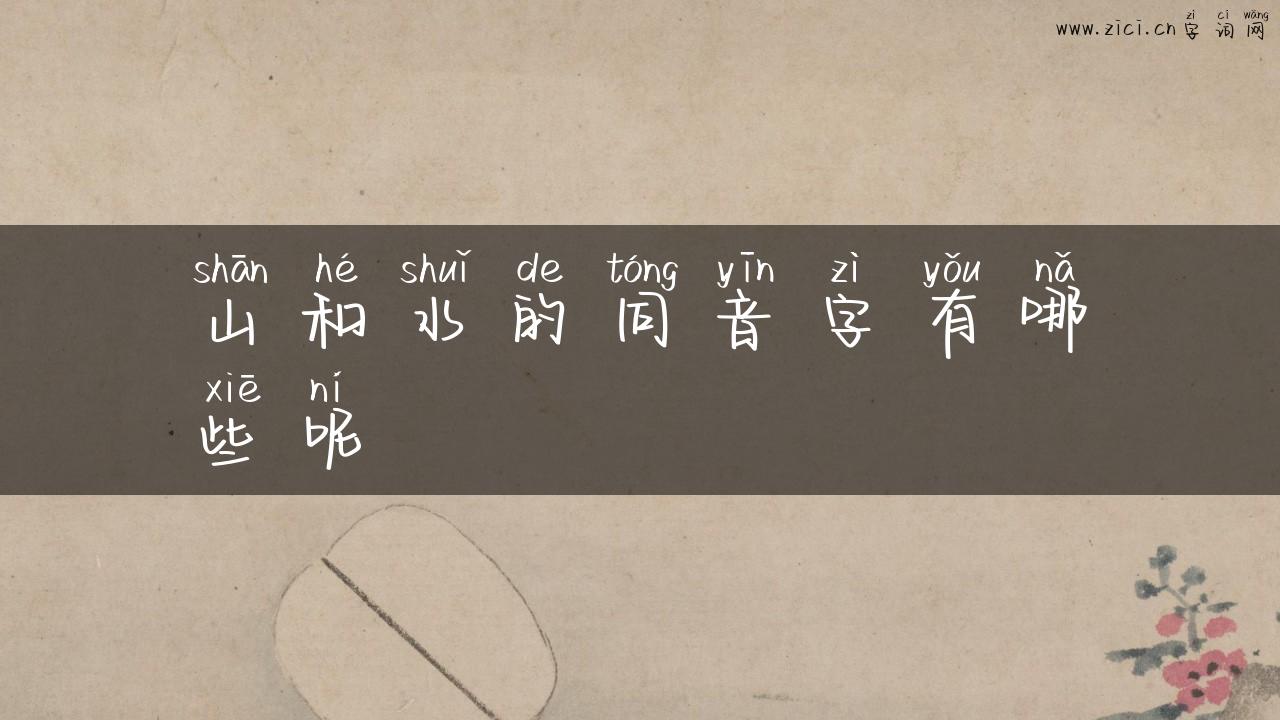 zì cí wǎng
www.zici.cn 字词网
shān hé shuǐ de tóng yīn zì yǒu nǎ
山和水的同音字有哪
xiē ní
些呢